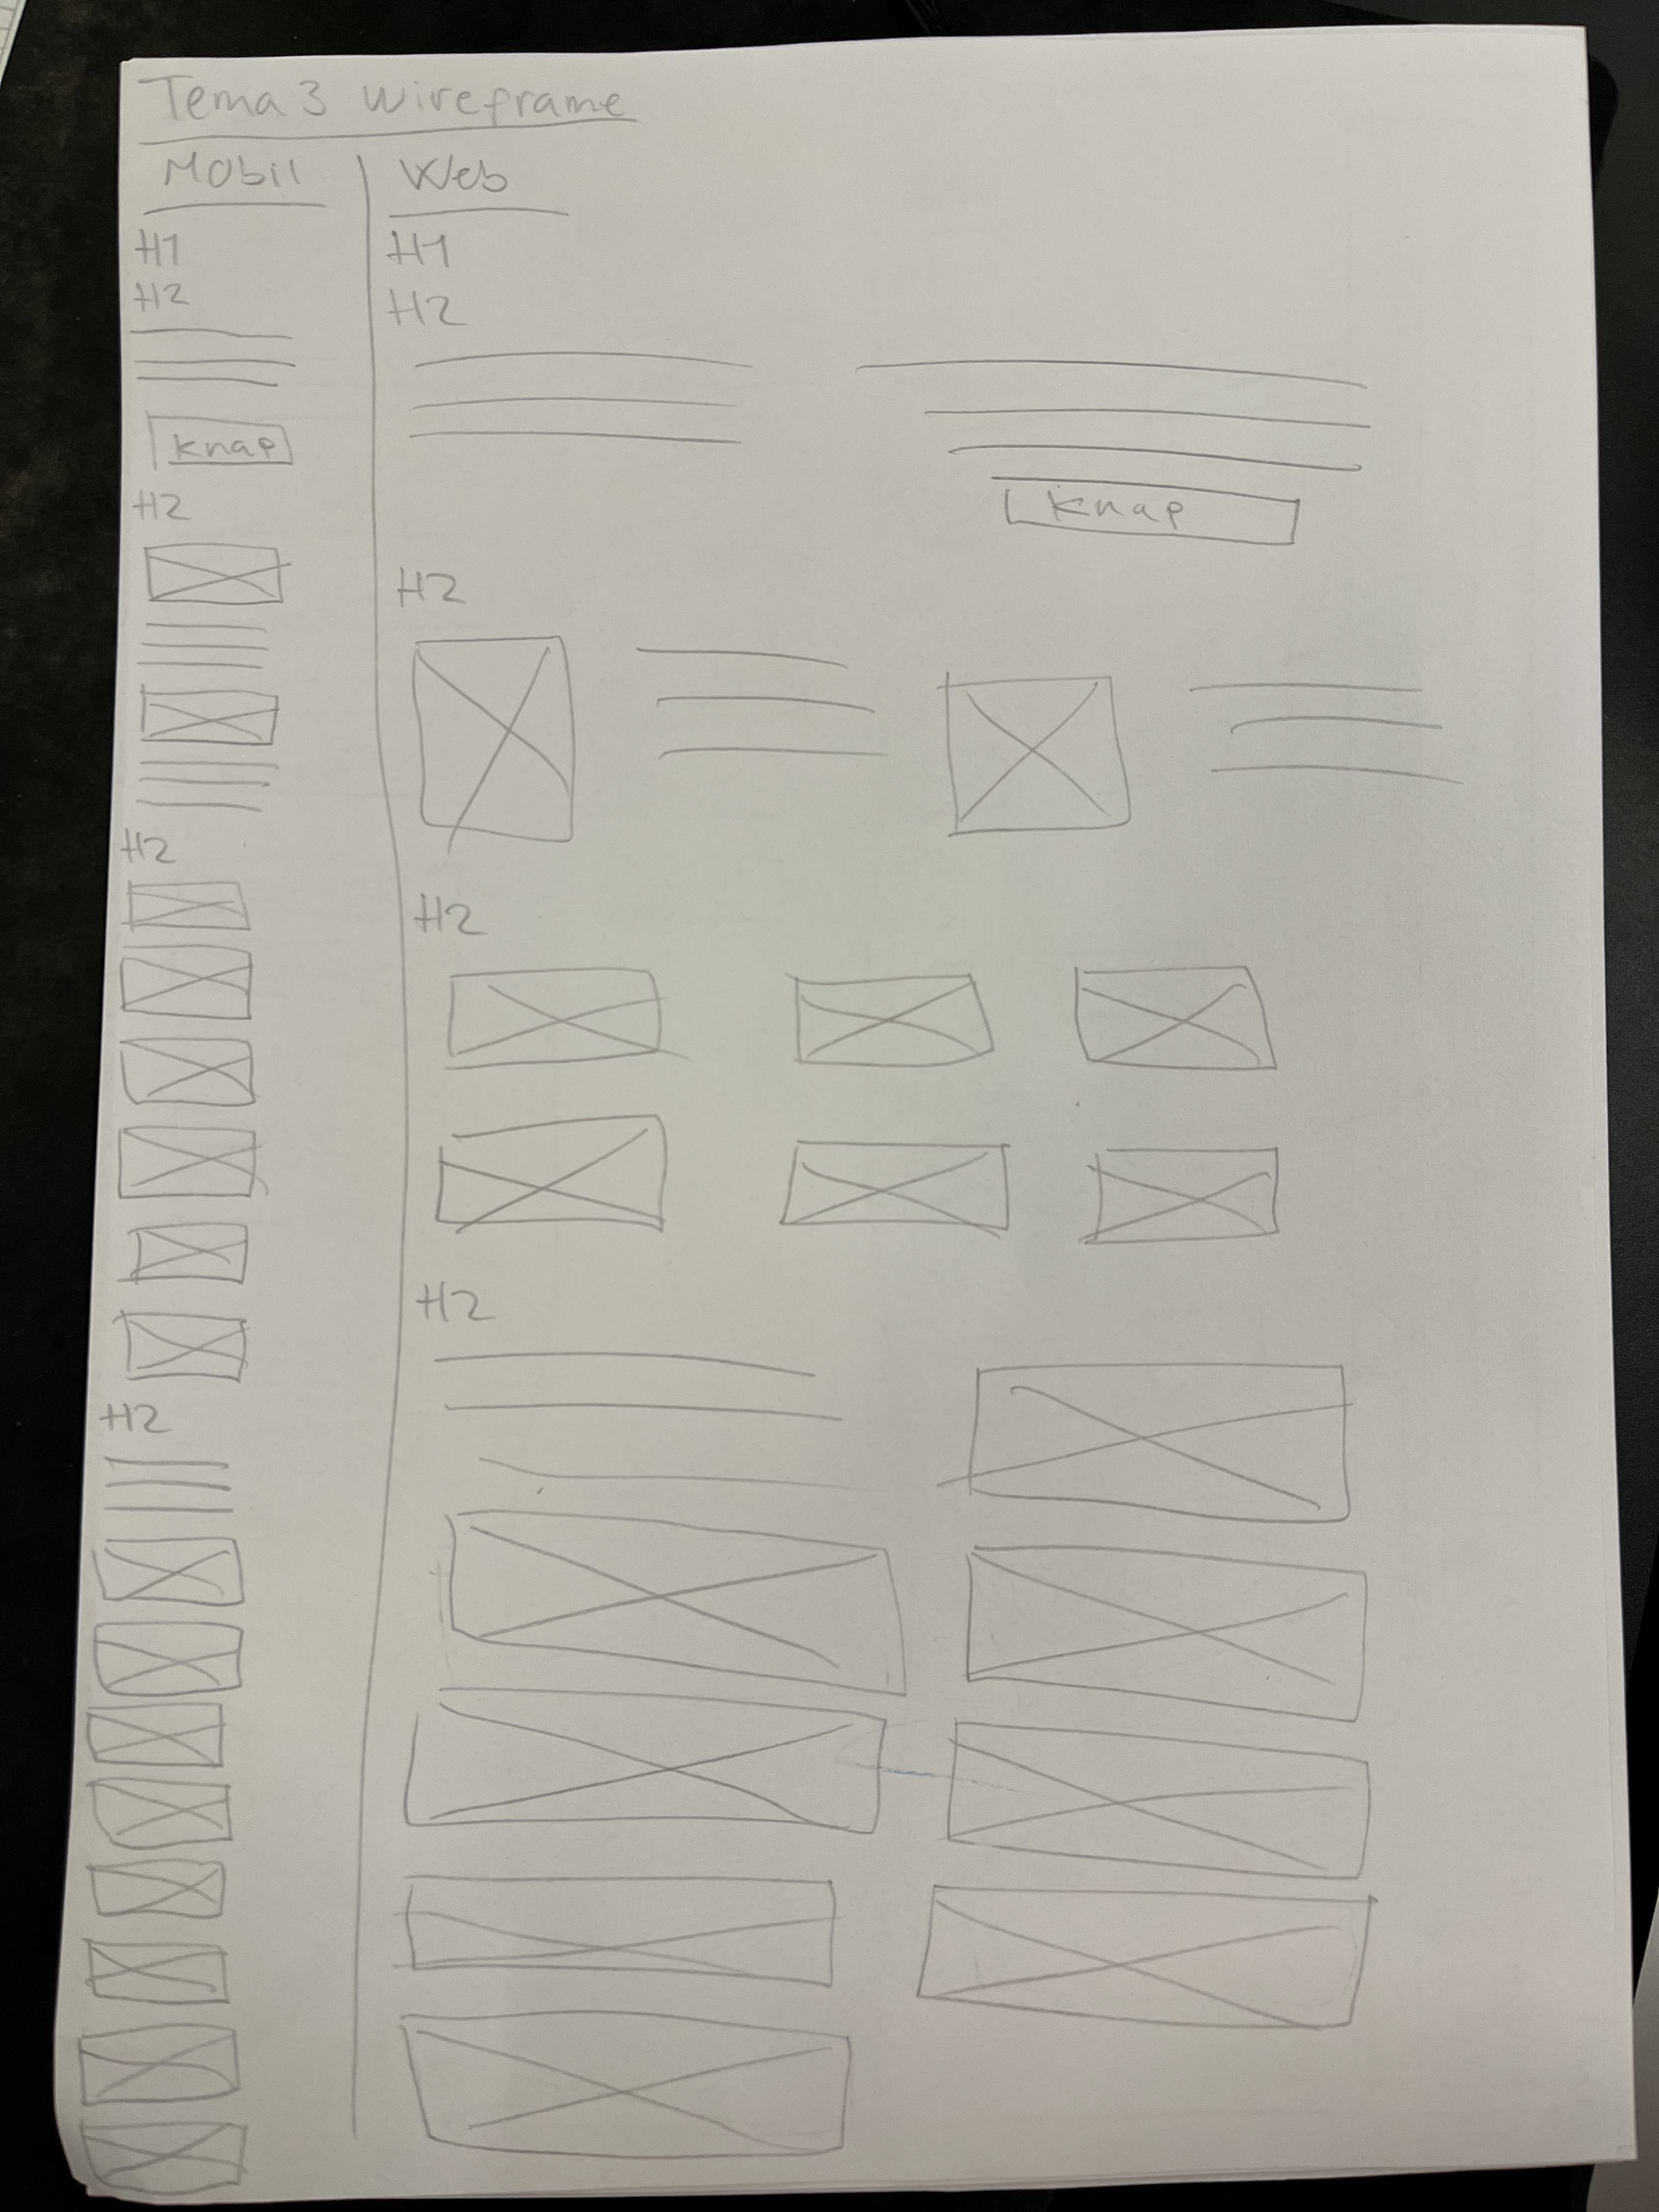 Tema 3 wireframe
Mobil
H1
H2
Knap
H2
H2
H2
Web
H1
H2
Knap
H2
H2
H2